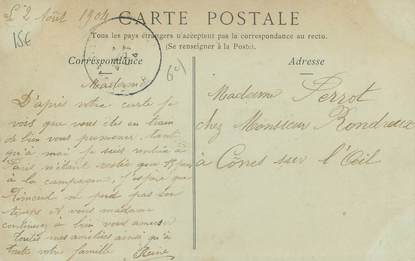 Le 2 Août 1904
15€
CARTE POSTALE
Tous les pays étrangers n'acceptent pas la correspondance au recto.
(Se renseigner à la Poste).
Correspondance
Adresse
Madame
D'après votre carte je
vois que vous êtes en train
de bien vous promener, tant
qu'à moi je suis rentrée à
Paris n'étant restée que 15 jours
à la campagne, j'espère que
ne perd pas son
temps. A vous madame
continuez à bien vous amuser
Toutes mes amitiés ainsi qu'à
toute votre famille Reine
Madame Perrot
chez Monsieur
à Cônes sur l'Œil